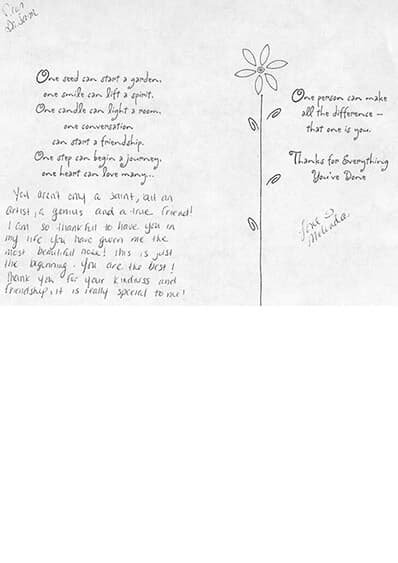 Dear
One seed can start a garden,
one smile can lift a spirit.
One candle can light a room,
one conversation
can start a friendship.
One step can begin a journey,
one heart can love many...
You aren't only a saint, but an
artist, a genius and a true friend!
I am so thankful to have you in
my life you have given me the
most beautiful nose! This is just
the beginning. You are the best!
Thank you for your kindness and
friendship, it is really special to me!
One person can make
all the difference –
that one is you.
Thanks for Everything
You've Done
Love
Melinda